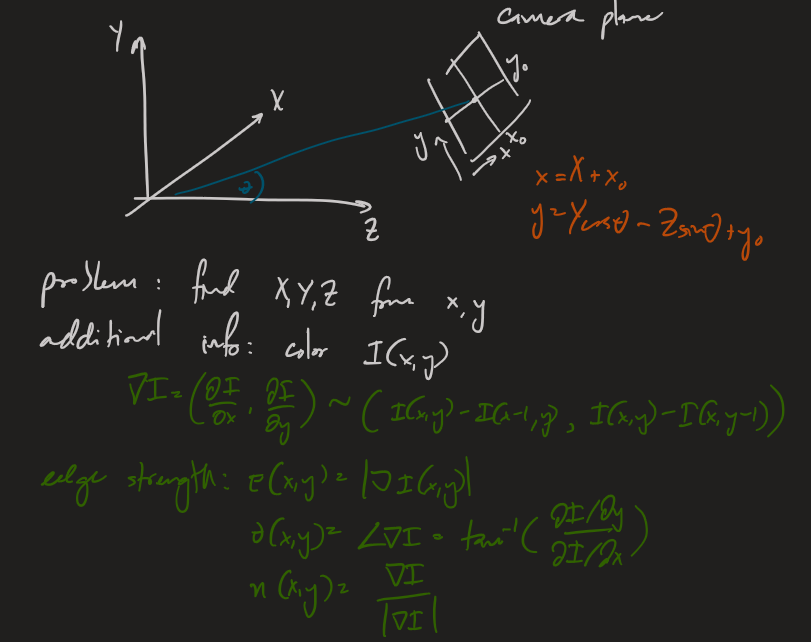 camera plane
Y
X
y₀
y
x
x₀
θ
Z
x = X + x₀
y = Y cosθ - Z sinθ + y₀
problem : find X, Y, Z from x, y
additional info: color I(x,y)
∇I = (∂I/∂x, ∂I/∂y) ~ (I(x,y) - I(x-1, y), I(x,y) - I(x, y-1))
edge strength: E(x,y) = |∇I(x,y)|
θ(x,y) = ∠∇I = tan⁻¹(∂I/∂y / ∂I/∂x)
n(x,y) = ∇I / |∇I|